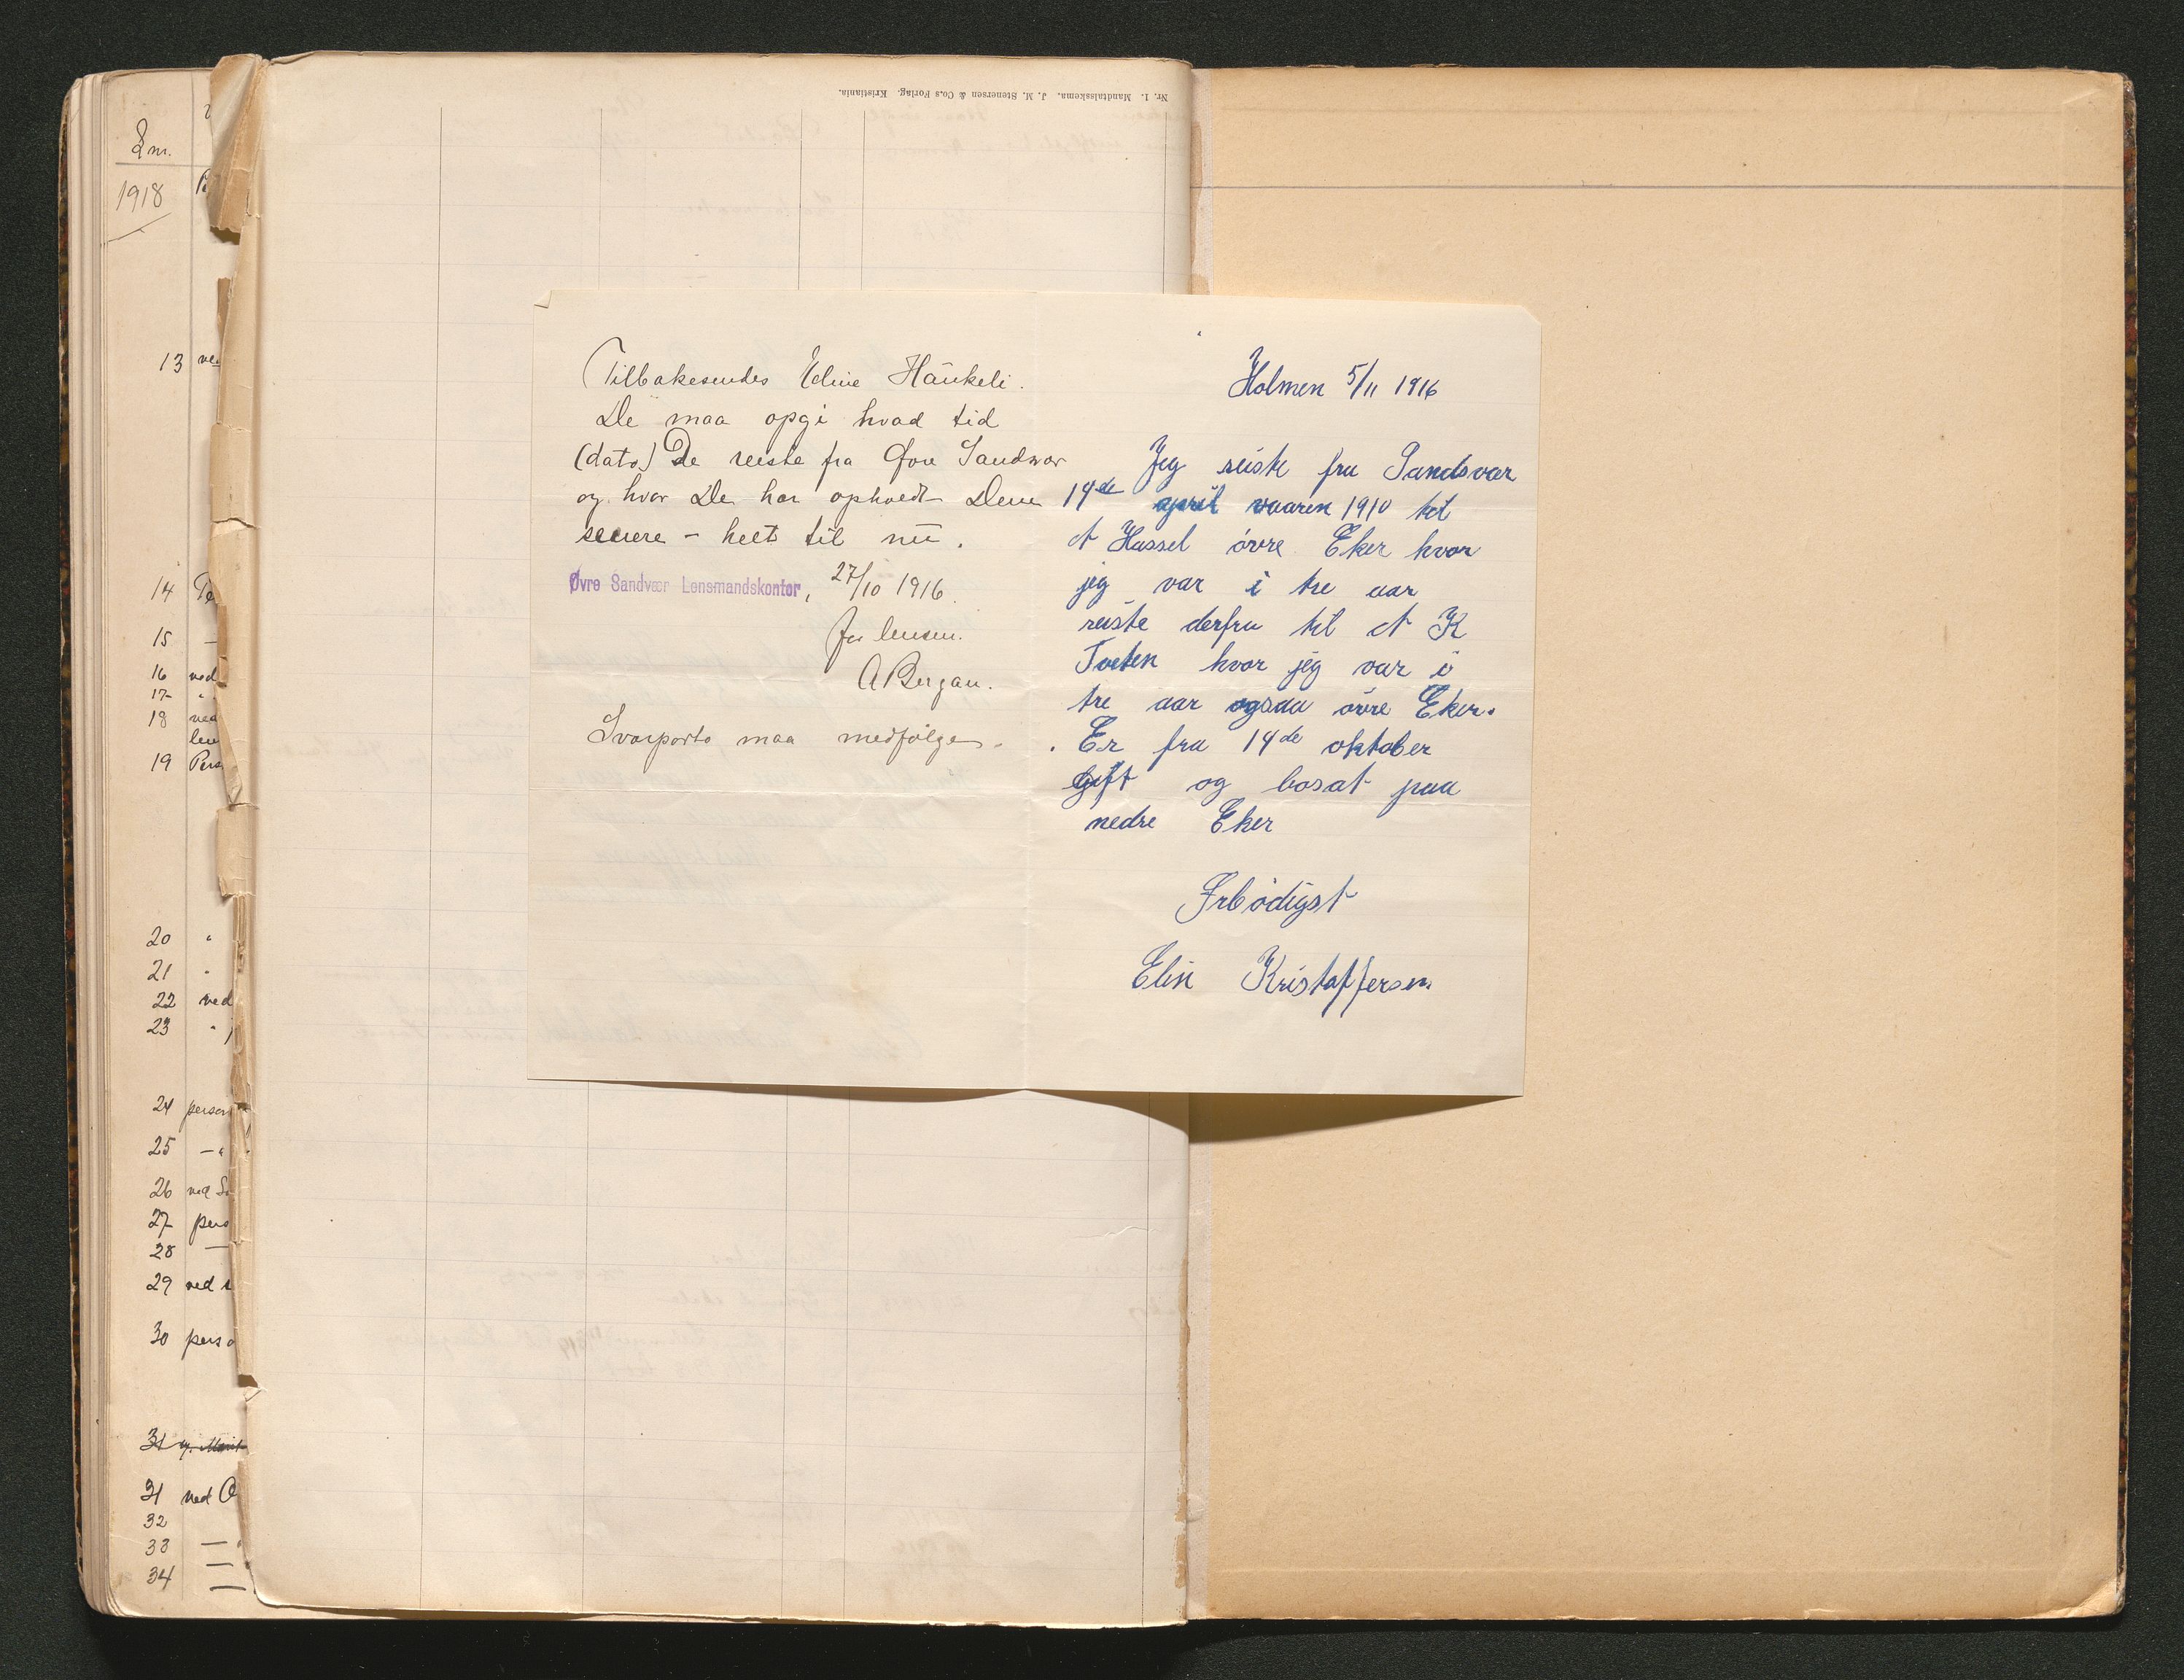 Lm.
1918
13 ve
14 Pe
15 —
16 ved
17 "
18 ved
len
19 Pers
20 "
21 "
22 ved
23 "
24 person
25 — "
26 ved S
27 pers
28 —
29 ved
30 perso
31
31 ved O
32
33 —
34 —
Nr. 1. Mandtalsskema. J. M. Stenersen & Co.s Forlag. Kristiania.
Tilbakesendes Edine Haukeli.
De maa opgi hvad tid
(dato) De reiste fra Øvre Sandsvær
og hvor De har opholdt Dem
senere – helt til nu.
Øvre Sandvær Lensmandskontor, 27/10 1916.
for lensm.
A Bergan.
Svarporto maa medfølge.
Holmen 5/11 1916
Jeg reiste fra Sandsvær
14de april vaaren 1910 til
A Hassel øvre Eker hvor
jeg var i tre aar
reiste derfra til A K
Tveten hvor jeg var i
tre aar ogsaa øvre Eker.
Er fra 14de oktober
gift og bosat paa
nedre Eker
Erbødigst
Elin Kristoffersen